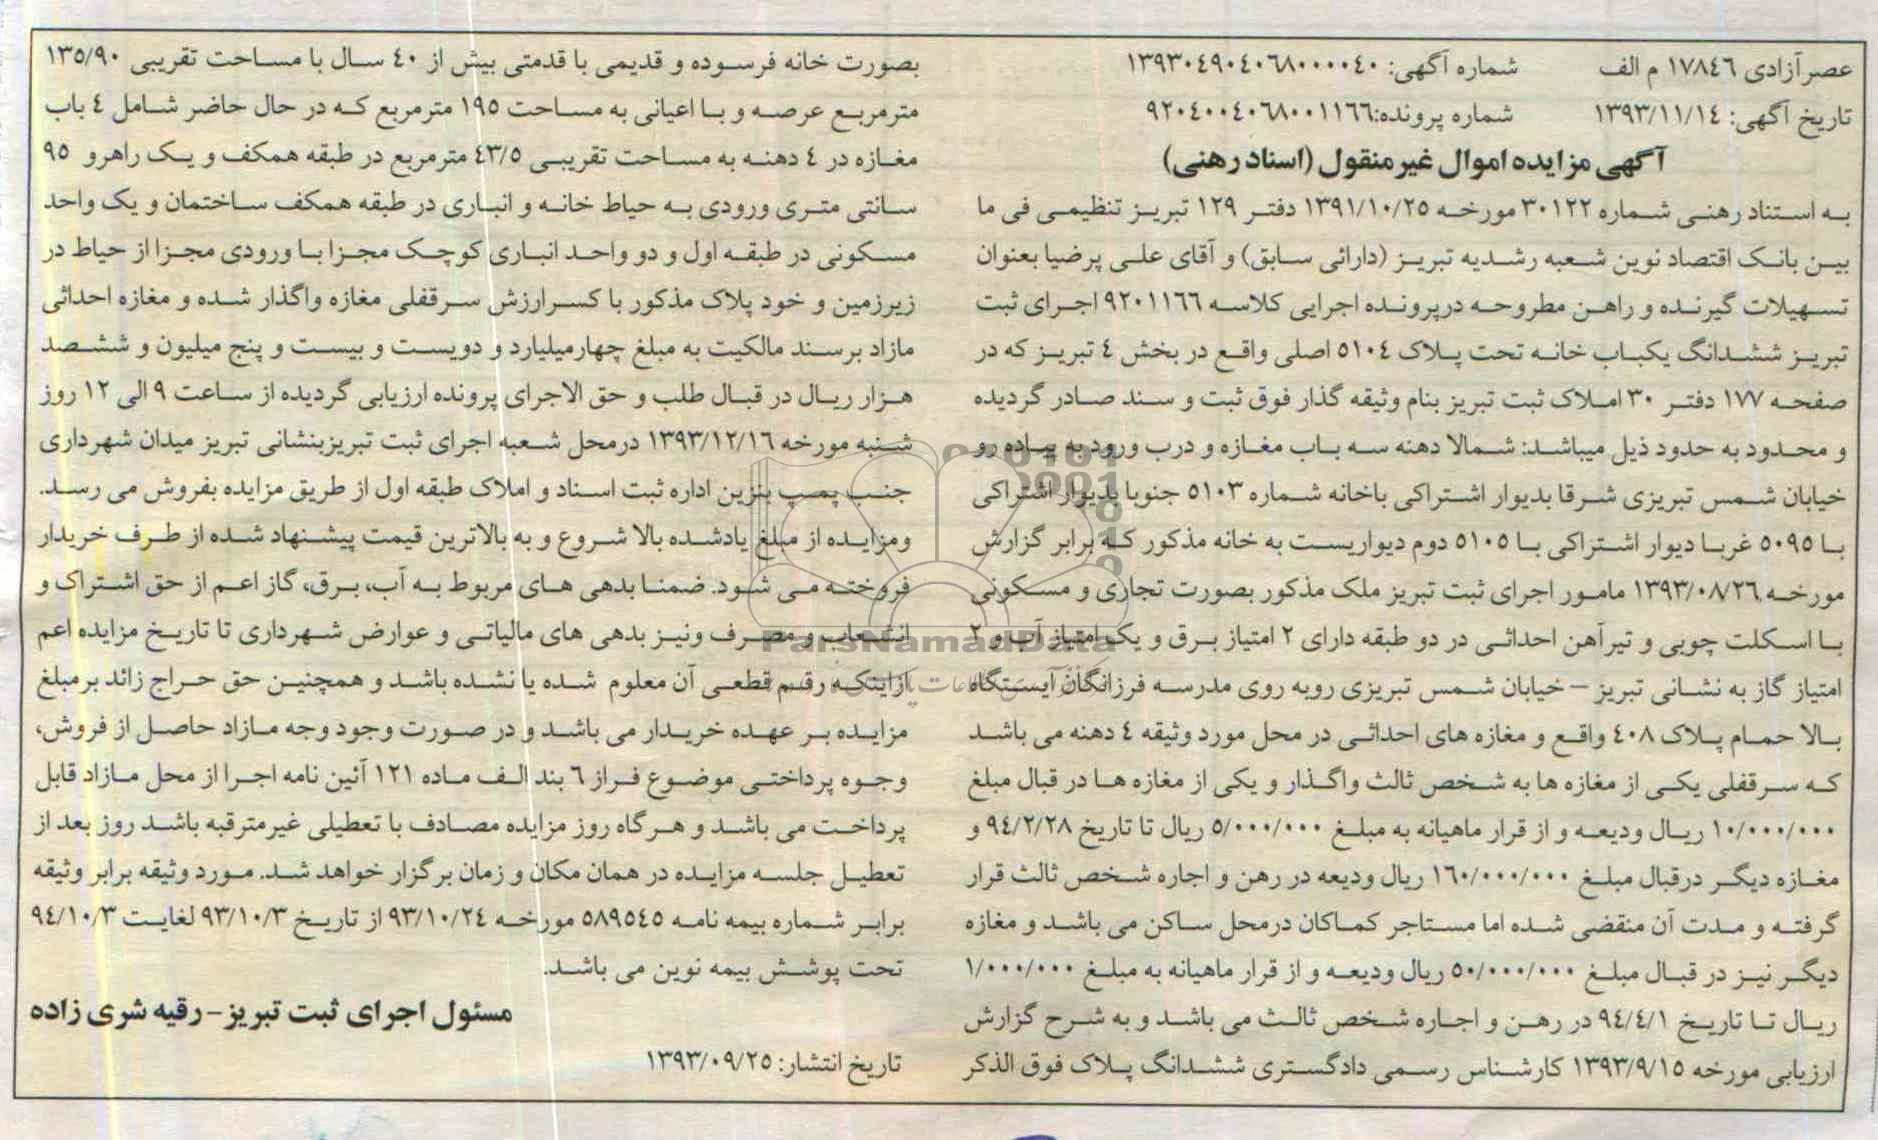 عصر آزادی ١٧٨٤٦ م الف
شماره آگهی: ١٣٩٣٠٤٩٠٤٠٦٨٠٠٠٠٤٠
تاریخ آگهی: ١٣٩٣/١١/١٤
شماره پرونده:٩٢٠٤٠٠٤٠٦٨٠٠١١٦٦
آگهی مزایده اموال غیرمنقول (اسناد رهنی)
به استناد رهنی شماره ٣٠١٢٢ مورخه ١٣٩١/١٠/٢٥ دفتر ١٢٩ تبریز تنظیمی فی ما
بین بانک اقتصاد نوین شعبه رشدیه تبریز (دارائی سابق) و آقای علی پرضیا بعنوان
تسهیلات گیرنده و راهن مطروحه درپرونده اجرایی کلاسه ٩٢٠١١٦٦ اجرای ثبت
تبریز ششدانگ یکباب خانه تحت پلاک ٥١٠٤ اصلی واقع در بخش ٤ تبریز که در
صفحه ١٧٧ دفتر ٣٠ املاک ثبت تبریز بنام وثیقه گذار فوق ثبت و سند صادر گردیده
و محدود به حدود ذیل میباشد: شمالا دهنه سه باب مغازه و درب ورود به پیاده رو
خیابان شمس تبریزی شرقا بدیوار اشتراکی باخانه شماره ٥١٠٣ جنوبا بدیوار اشتراکی
با ٥٠٩٥ غربا دیوار اشتراکی با ٥١٠٥ دوم دیواریست به خانه مذکور که برابر گزارش
مورخه ١٣٩٣/٠٨/٢٦ مامور اجرای ثبت تبریز ملک مذکور بصورت تجاری و مسکونی
با اسکلت چوبی و تیرآهن احداثی در دو طبقه دارای ٢ امتیاز برق و یک امتیاز آب و ٢
امتیاز گاز به نشانی تبریز – خیابان شمس تبریزی روبه روی مدرسه فرزانگان ایستگاه
بالا حمام پلاک ٤٠٨ واقع و مغازه های احداثی در محل مورد وثیقه ٤ دهنه می باشد
که سرقفلی یکی از مغازه ها به شخص ثالث واگذار و یکی از مغازه ها در قبال مبلغ
١٠/٠٠٠/٠٠٠ ریال ودیعه و از قرار ماهیانه به مبلغ ٥/٠٠٠/٠٠٠ ریال تا تاریخ ٩٤/٢/٢٨ و
مغازه دیگر درقبال مبلغ ١٦٠/٠٠٠/٠٠٠ ریال ودیعه در رهن و اجاره شخص ثالث قرار
گرفته و مدت آن منقضی شده اما مستاجر کماکان درمحل ساکن می باشد و مغازه
دیگر نیز در قبال مبلغ ٥٠/٠٠٠/٠٠٠ ریال ودیعه و از قرار ماهیانه به مبلغ ١/٠٠٠/٠٠٠
ریال تا تاریخ ٩٤/٤/١ در رهن و اجاره شخص ثالث می باشد و به شرح گزارش
ارزیابی مورخه ١٣٩٣/٩/١٥ کارشناس رسمی دادگستری ششدانگ پلاک فوق الذکر
بصورت خانه فرسوده و قدیمی با قدمتی بیش از ٤٠ سال با مساحت تقریبی ١٣٥/٩٠
مترمربع عرصه و با اعیانی به مساحت ١٩٥ مترمربع که در حال حاضر شامل ٤ باب
مغازه در ٤ دهنه به مساحت تقریبی ٤٣/٥ مترمربع در طبقه همکف و یک راهرو ٩٥
سانتی متری ورودی به حیاط خانه و انباری در طبقه همکف ساختمان و یک واحد
مسکونی در طبقه اول و دو واحد انباری کوچک مجزا با ورودی مجزا از حیاط در
زیرزمین و خود پلاک مذکور با کسر ارزش سرقفلی مغازه واگذار شده و مغازه احداثی
مازاد برسند مالکیت به مبلغ چهارمیلیارد و دویست و بیست و پنج میلیون و ششصد
هزار ریال در قبال طلب و حق الاجرای پرونده ارزیابی گردیده از ساعت ٩ الی ١٢ روز
شنبه مورخه ١٣٩٣/١٢/١٦ درمحل شعبه اجرای ثبت تبریزبنشانی تبریز میدان شهرداری
جنب پمپ بنزین اداره ثبت اسناد و املاک طبقه اول از طریق مزایده بفروش می رسد.
ومزایده از مبلغ یادشده بالا شروع و به بالاترین قیمت پیشنهاد شده از طرف خریدار
فروخته می شود. ضمنا بدهی های مربوط به آب، برق، گاز اعم از حق اشتراک و
انشعاب و مصرف ونیز بدهی های مالیاتی و عوارض شهرداری تا تاریخ مزایده اعم
ازاینکه رقم قطعی آن معلوم شده یا نشده باشد و همچنین حق حراج زائد برمبلغ
مزایده بر عهده خریدار می باشد و در صورت وجود وجه مازاد حاصل از فروش،
وجوه پرداختی موضوع فراز ٦ بند الف ماده ١٢١ آئین نامه اجرا از محل مازاد قابل
پرداخت می باشد و هرگاه روز مزایده مصادف با تعطیلی غیرمترقبه باشد روز بعد از
تعطیل جلسه مزایده در همان مکان و زمان برگزار خواهد شد. مورد وثیقه برابر وثیقه
برابر شماره بیمه نامه ٥٨٩٥٤٥ مورخه ٩٣/١٠/٢٤ از تاریخ ٩٣/١٠/٣ لغایت ٩٤/١٠/٣
تحت پوشش بیمه نوین می باشد.
مسئول اجرای ثبت تبریز – رقیه شری زاده
تاریخ انتشار: ١٣٩٣/٠٩/٢٥
ParsNamadData